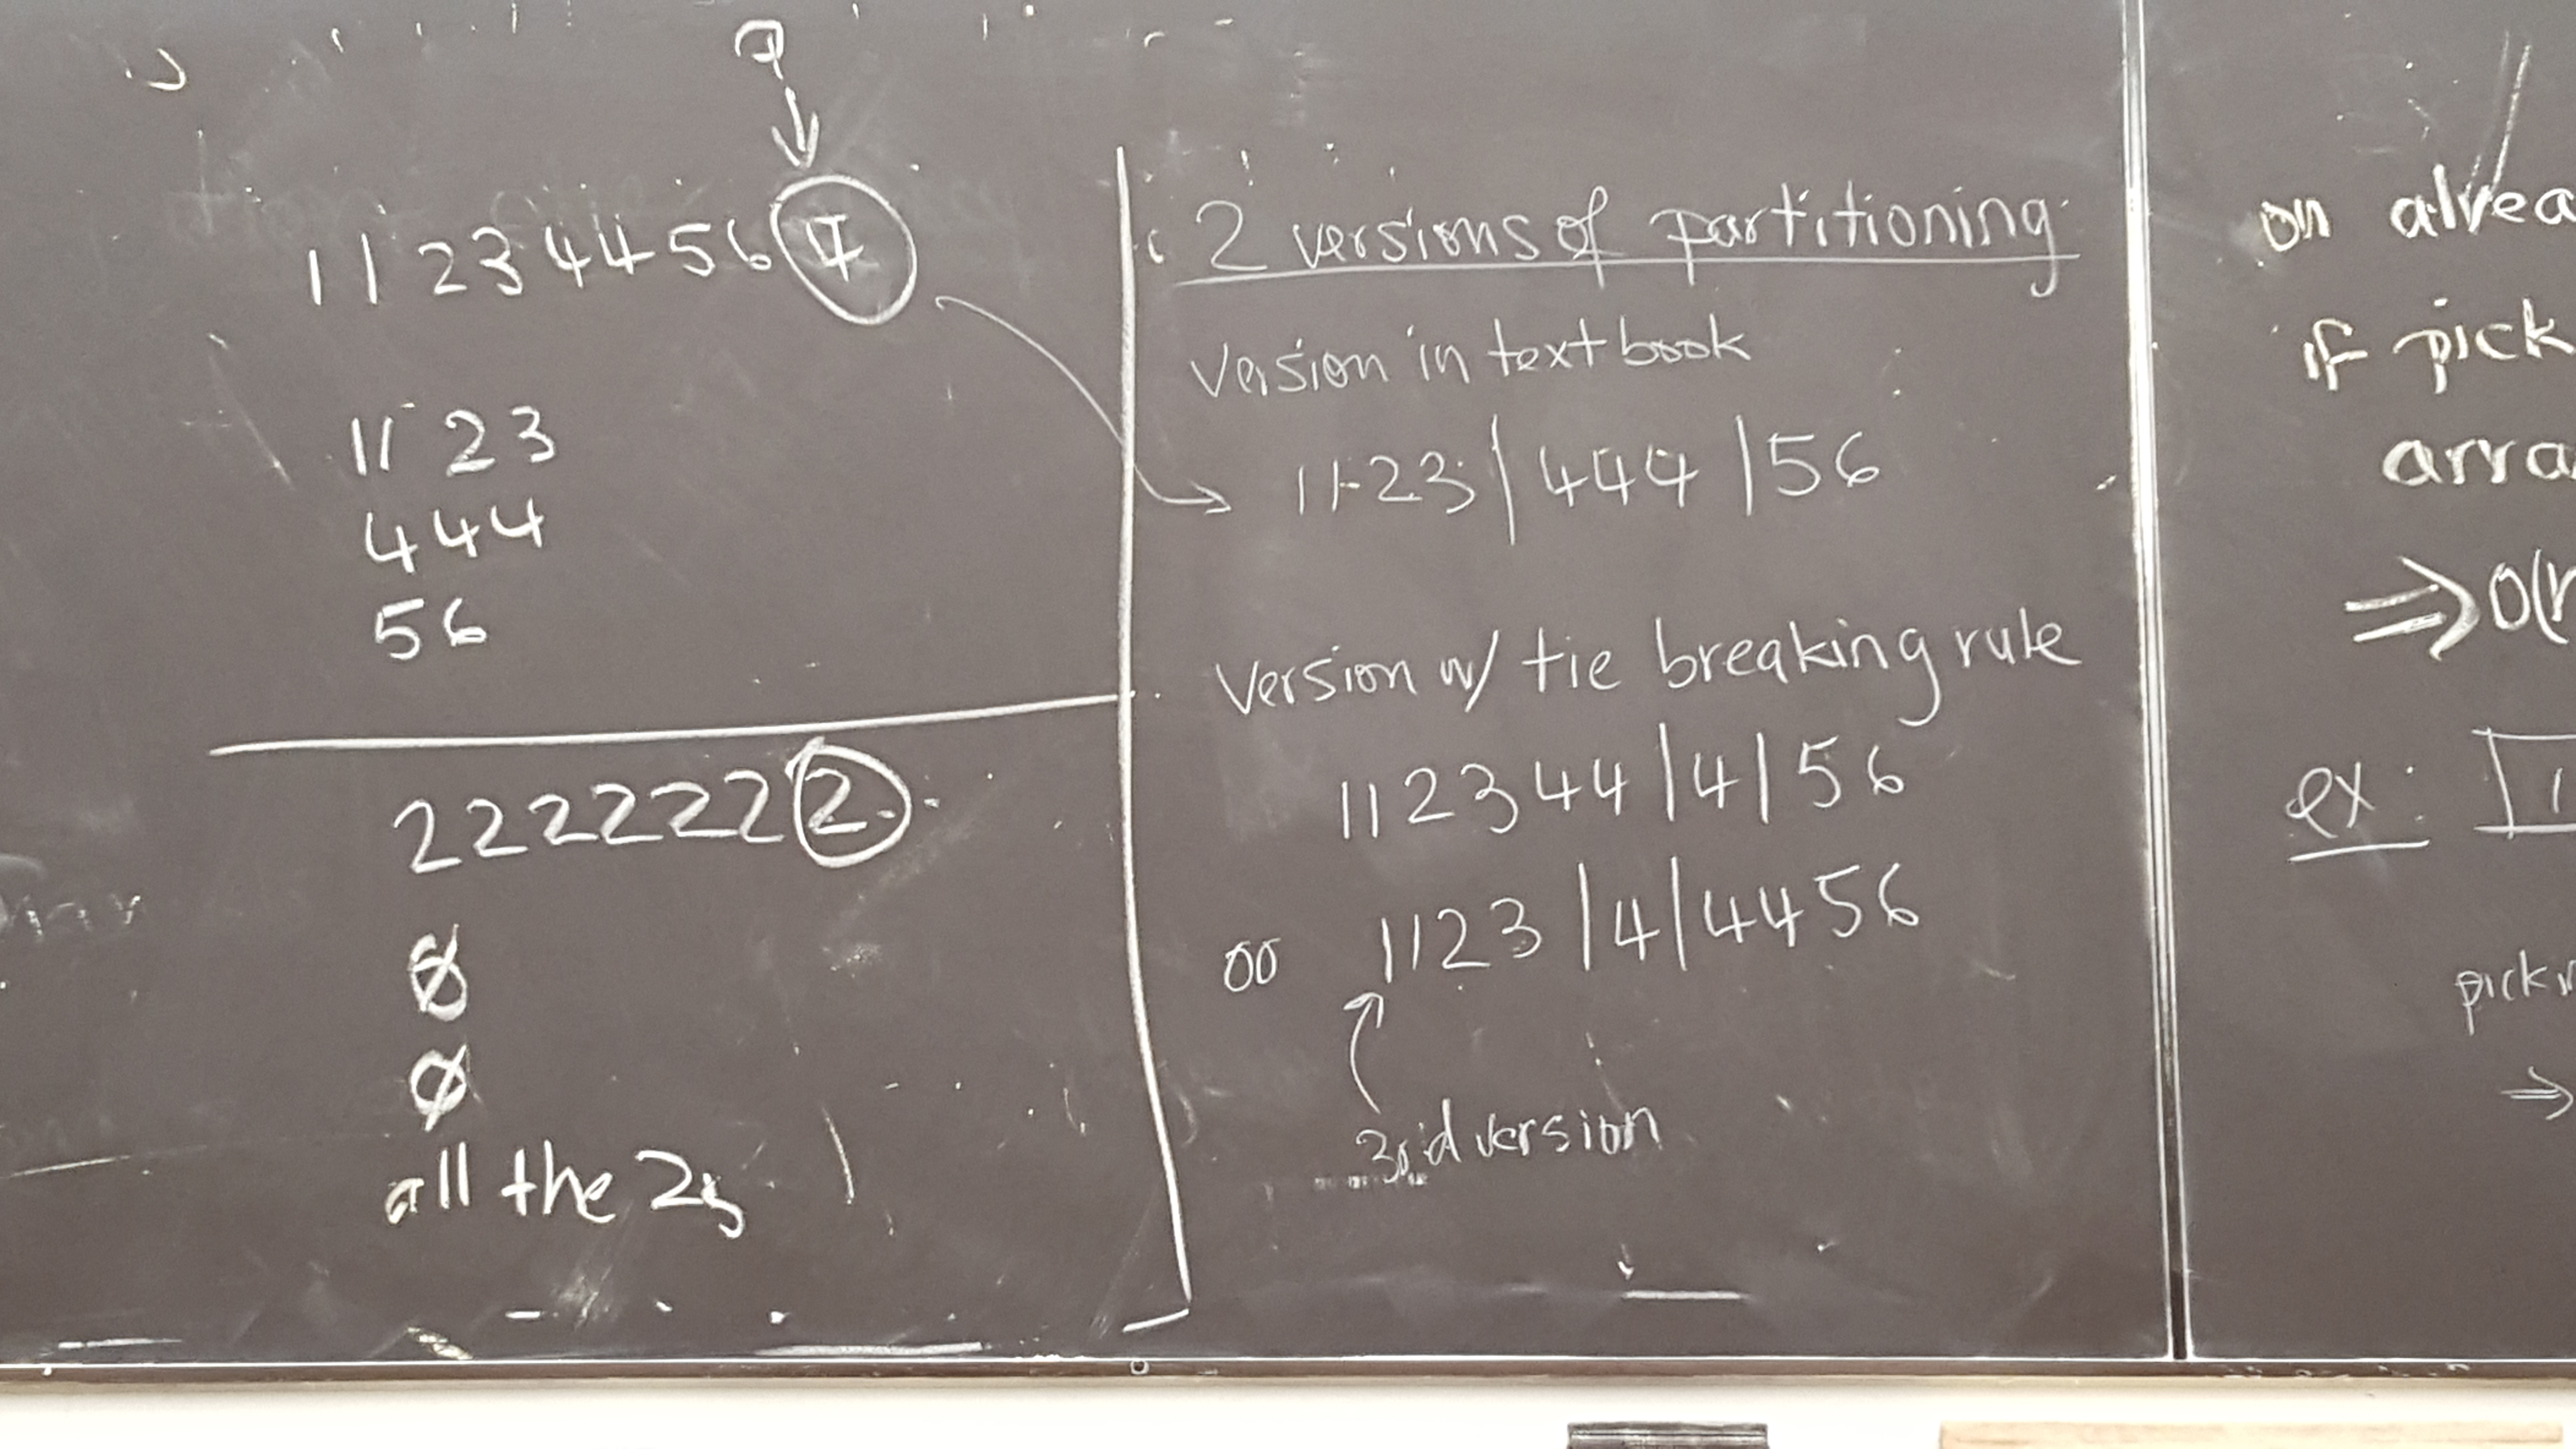 q
1 1 2 3 4 4 5 6 4
11 23
444
56
2 2 2 2 2 2 2 2
∅
∅
all the 2s
2 versions of partitioning
version in textbook
1123 | 444 | 56
version w/ tie breaking rule
112344 | 4 | 56
1123 | 4 | 4456
3rd version
on
if pick
⇒
ex:
⇒